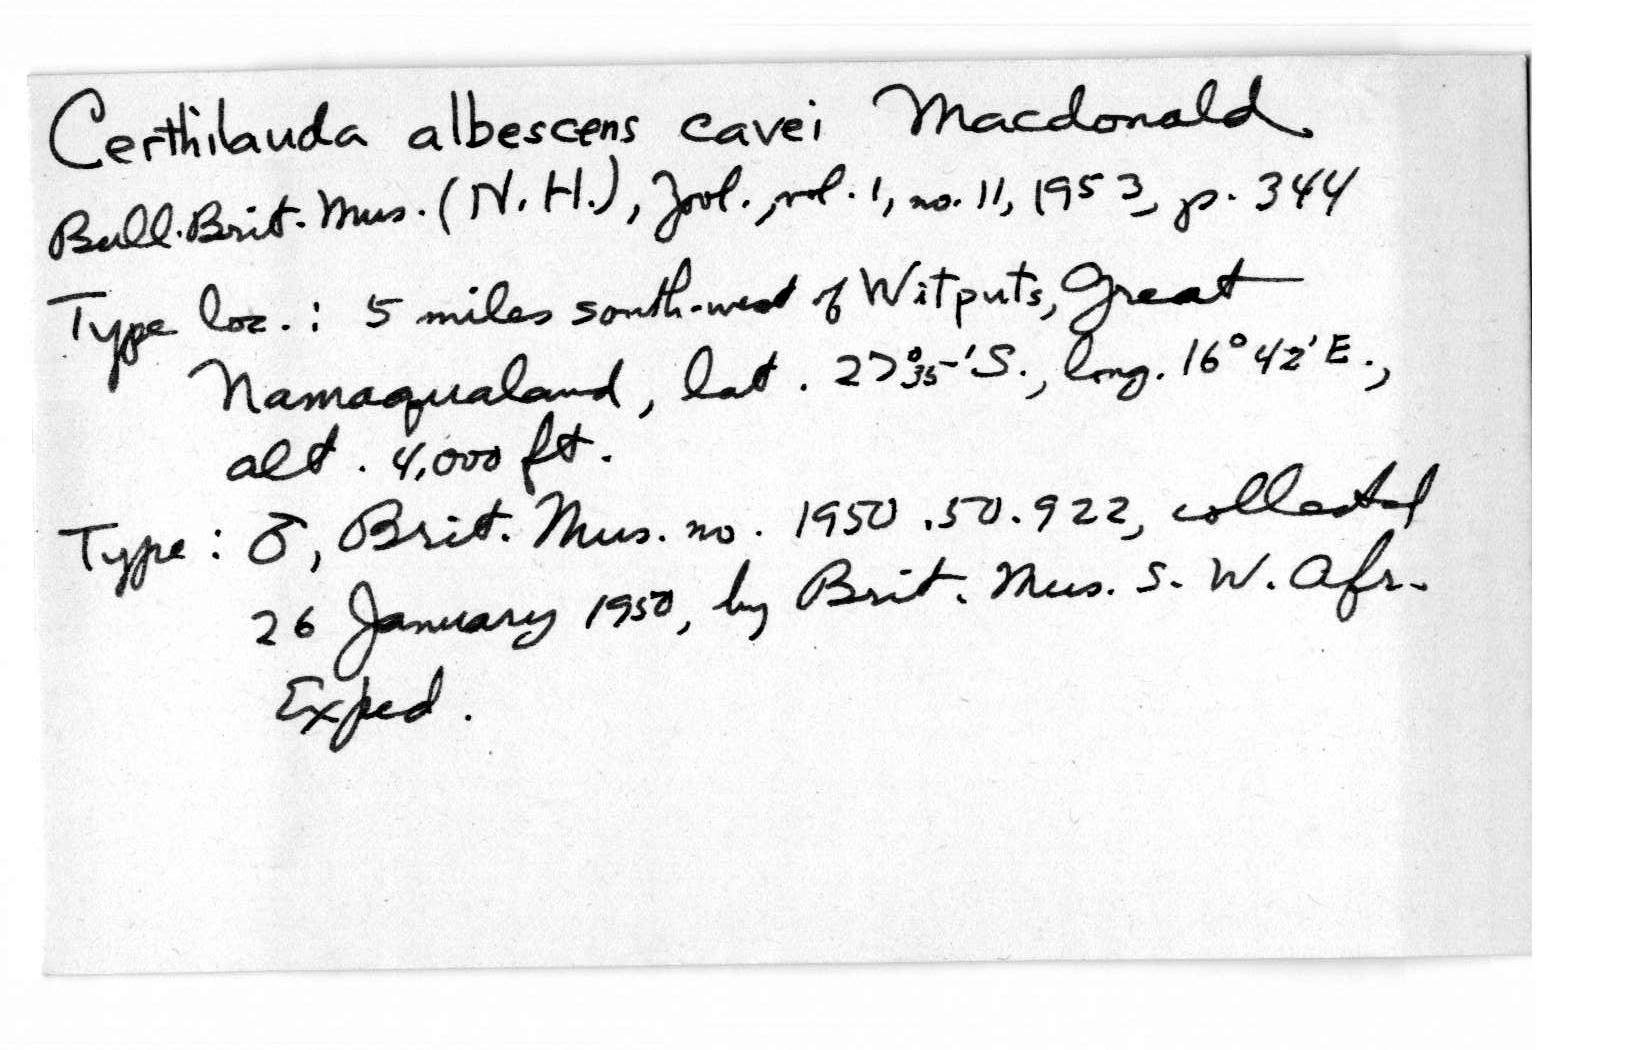 Certhilauda albescens cavei Macdonald
Bull. Brit. Mus. (N. H.), Zool., vol. 1, no. 11, 1953, p. 344
Type loc.: 5 miles south-west of Witputs, Great
Namaqualand, lat. 27°35'S., long. 16°42'E.,
alt. 4,000 ft.
Type: ♂, Brit. Mus. no. 1950.50.922, collected
26 January 1950, by Brit. Mus. S. W. Afr.
Exped.